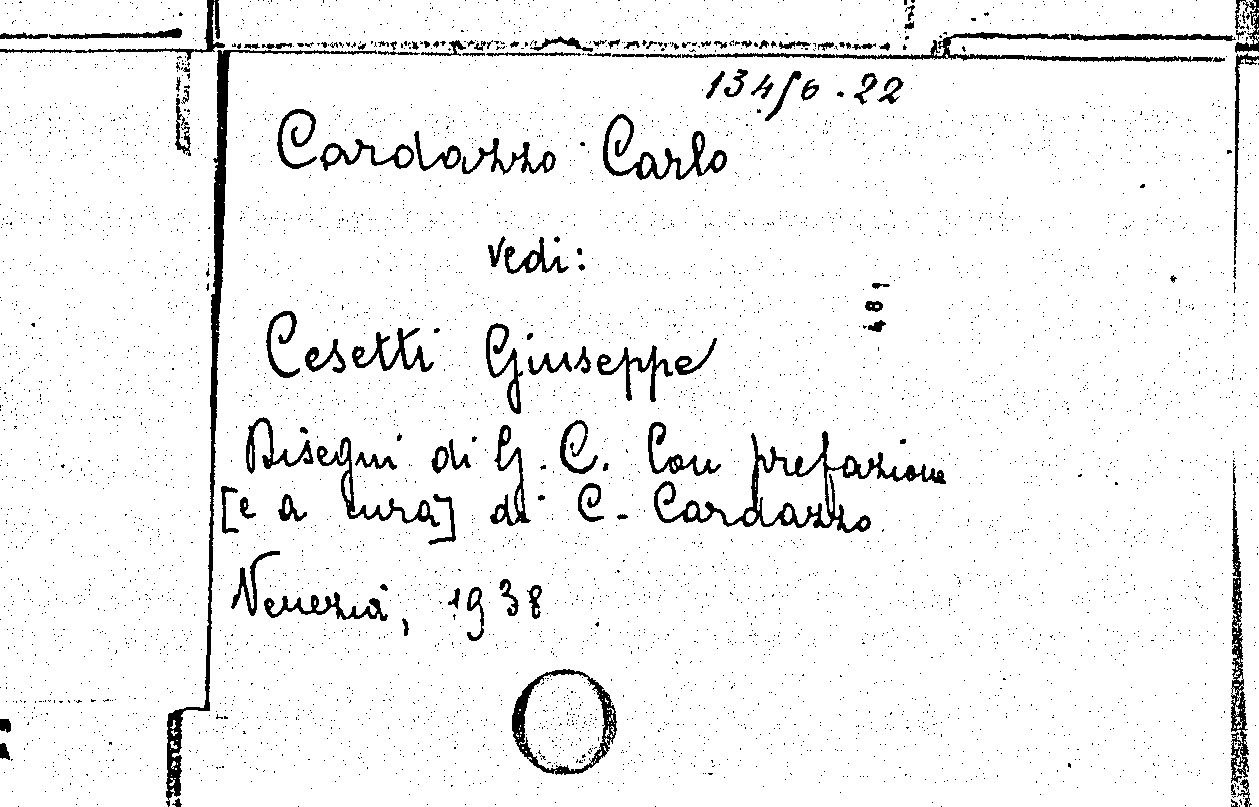 134/6.22
Cardazzo Carlo
vedi:
481
Cesetti Giuseppe
Disegni di G. C. Con prefazione
[e a cura] di C. Cardazzo
Venezia, 1938